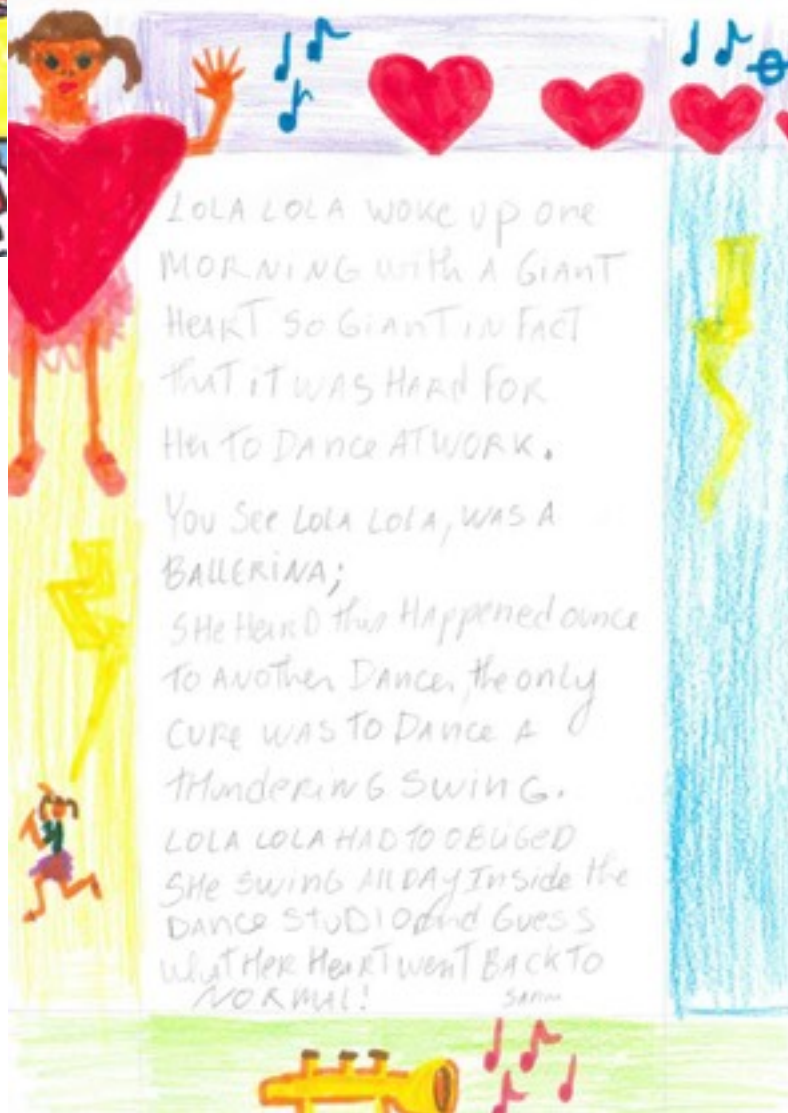 LOLA LOLA WOKE up one
MORNING with A GIANT
HEART SO GIANT IN FACT
that iT WAS HARd FOR
Her TO DAnce AT WORK.
You See LOLA LOLA, WAS A
BALLERINA;
SHe HearD this HAppened ounce
To ANother Dancer, the only
CURe WAS TO DAnce A
tHundeRinG SWinG.
LOLA LOLA HAD TO OBLIGED
SHe SWinG All DAy InSide the
DAnce StuDIO and GueSS
whaT HeR HeaRT wenT BACK TO
NORMAL!